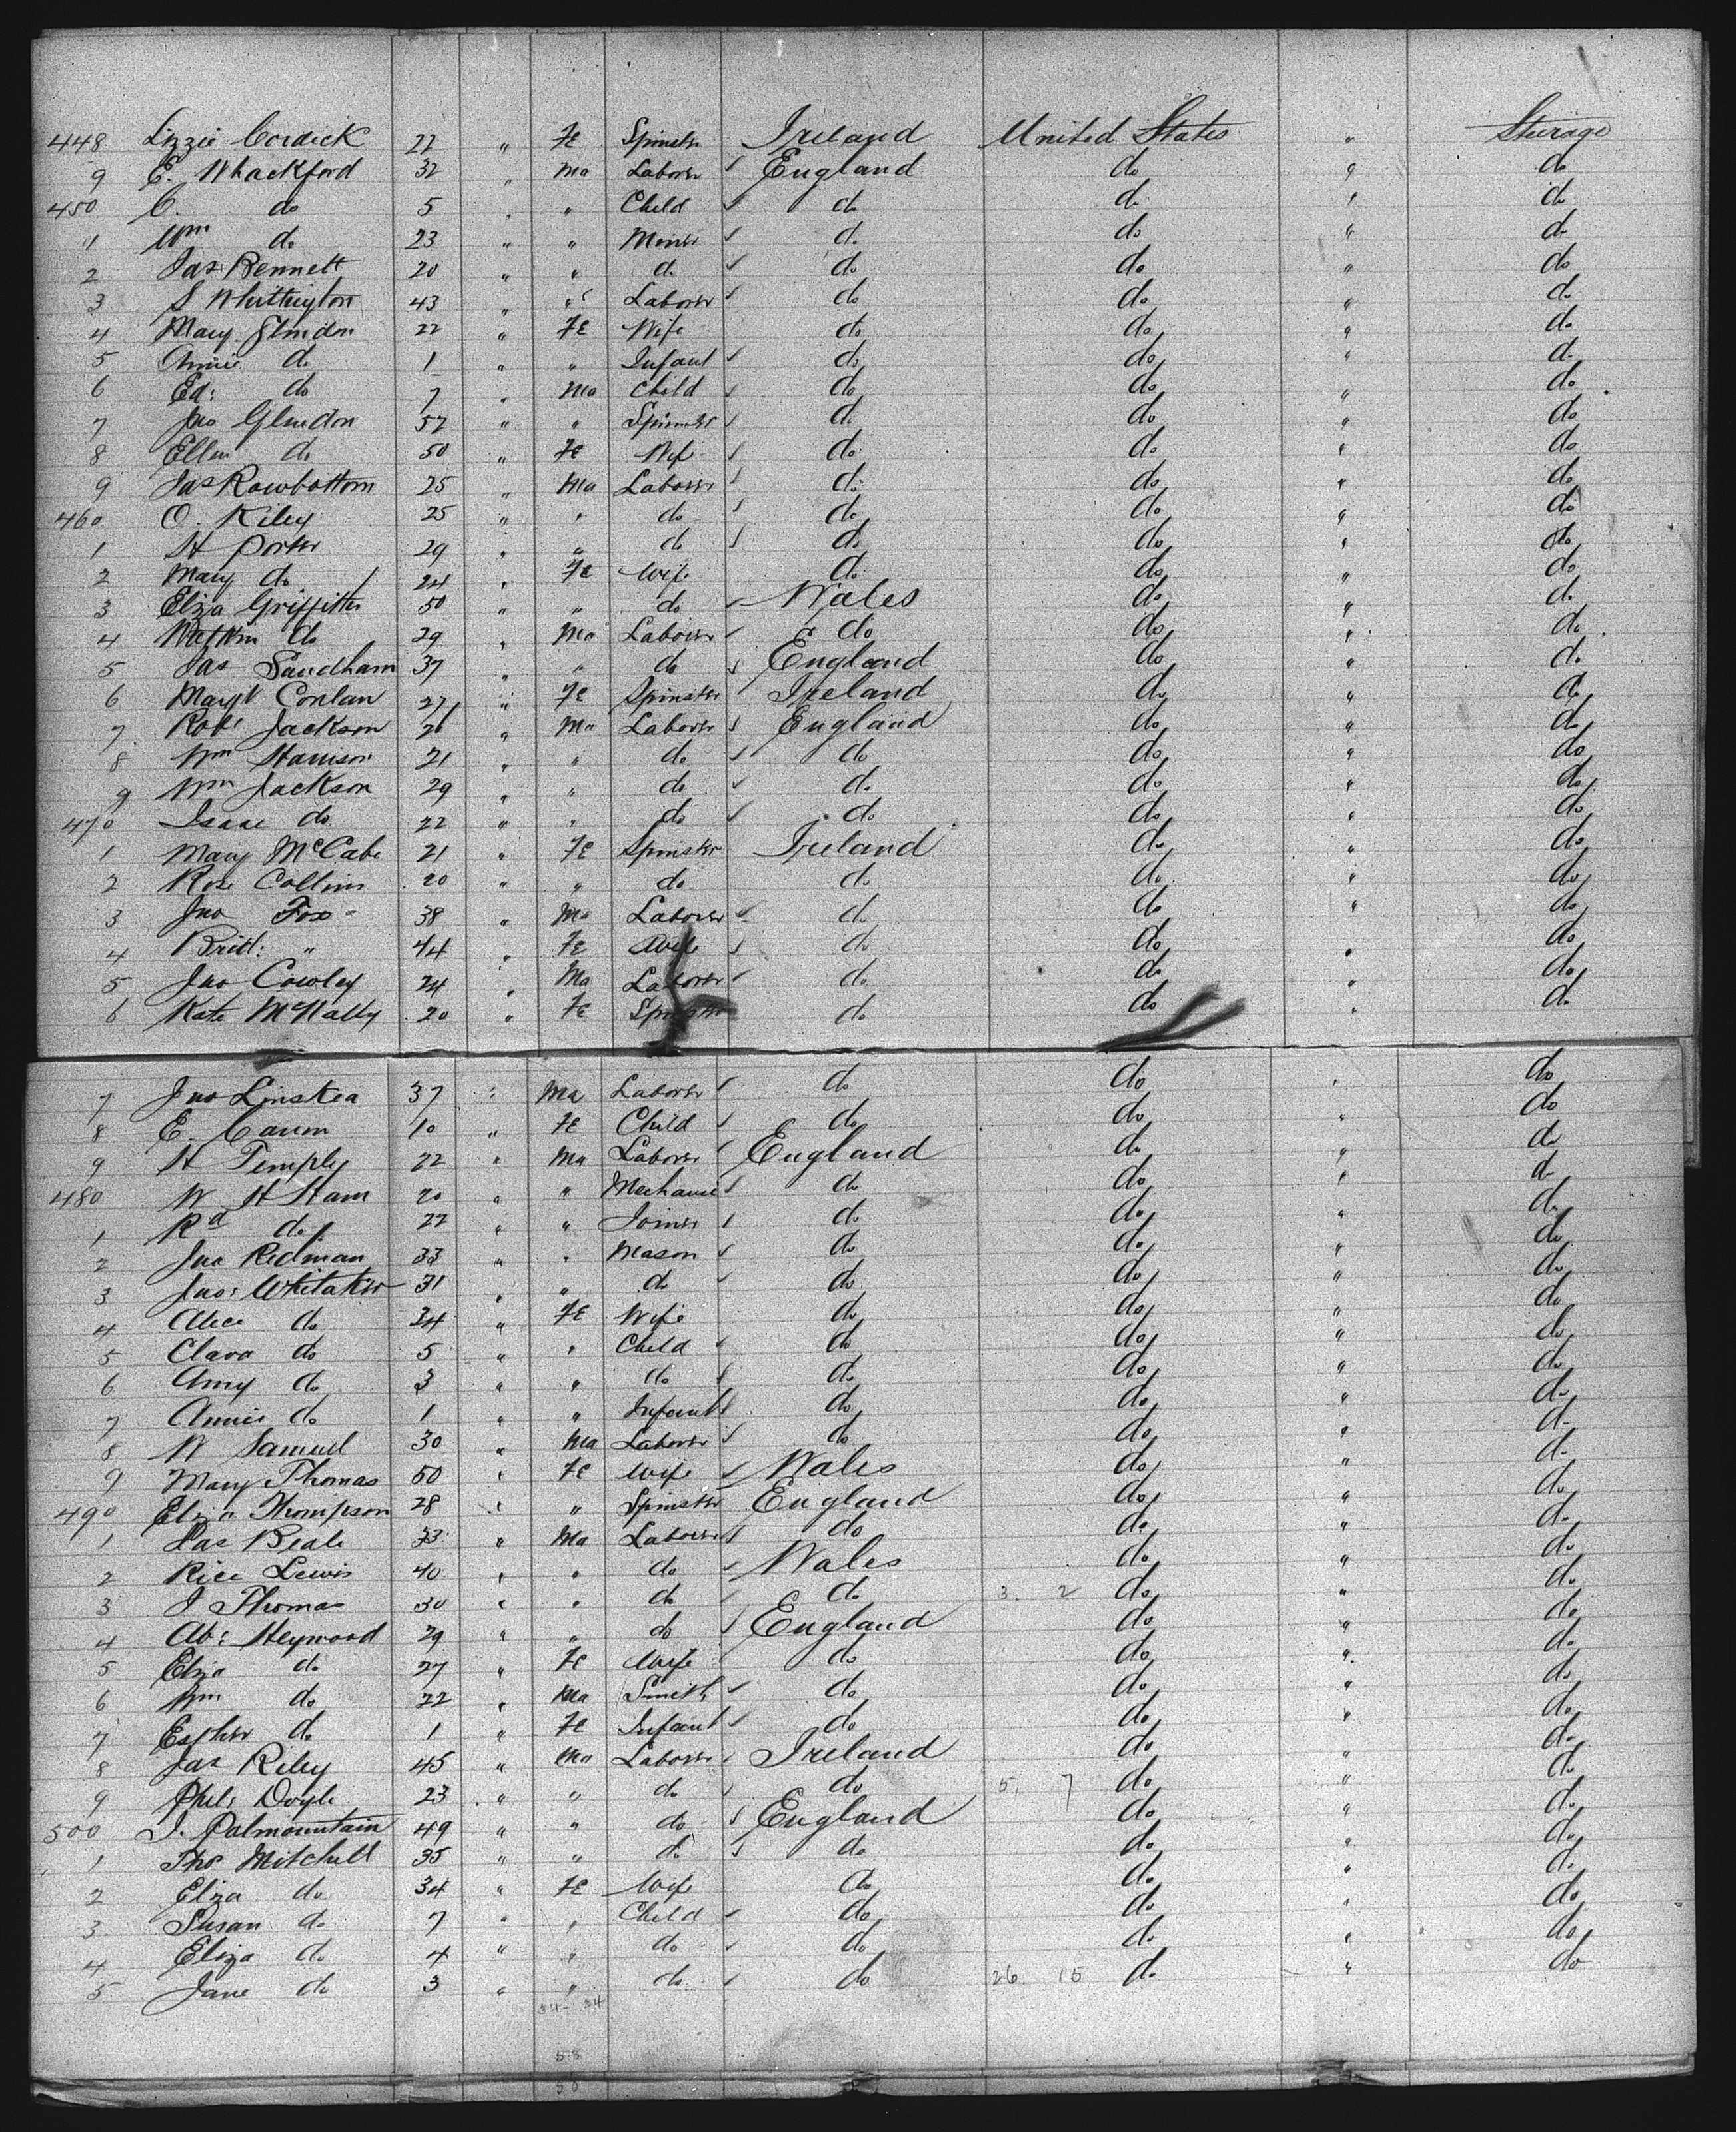 448 Lizzie Cordick 22 " Fe Spinster Ireland United States " Steerage
9 E. Whackford 32 " Ma Laborer England do " do
450 C. do 5 " " Child do do " do
1 Wm do 23 " " Miner do do " do
2 Jas Bennett 20 " " do do do " do
3 S Whittington 43 " " Laborer do do " do
4 Mary Glindon 22 " Fe Wife do do " do
5 Annie do 1 " " Infant do do " do
6 Ed: do 7 " Ma Child do do " do
7 Jno Glindon 57 " " Spinner do do " do
8 Ellen do 50 " Fe Wife do do " do
9 Jas Rowbottom 25 " Ma Laborer do do " do
460 O. Kiley 25 " " do do do " do
1 H Porter 29 " " do do do " do
2 Mary do 24 " Fe Wife do do " do
3 Eliza Griffiths 50 " " do Wales do " do
4 do 29 " Ma Laborer do do " do
5 Jas Sandham 37 " " do England do " do
6 Margt Conlan 27 " Fe Spinster Ireland do " do
7 Robt Jackson 26 " Ma Laborer England do " do
8 Wm Harrison 21 " " do do do " do
9 Wm Jackson 29 " " do do do " do
470 Isaac do 22 " " do do do " do
1 Mary McCabe 21 " Fe Spinster Ireland do " do
2 Rose Collins 20 " " do do do " do
3 Jno Fox 38 " Ma Laborer do do " do
4 Bridt: " 44 " Fe Wife do do " do
5 Jno Cowley 24 " Ma Laborer do do " do
6 Kate McNally 20 " Fe Spinster do do " do
7 Jno Linskea 37 " Ma Laborer do do " do
8 E. 10 " Fe Child do do " do
9 H Temply 22 " Ma Laborer England do " do
480 W H Ham 20 " " Mechanic do do " do
1 Rd do 22 " " Joiner do do " do
2 Jno Redman 33 " " Mason do do " do
3 Jno: Whitaker 31 " " do do do " do
4 Alice do 34 " Fe Wife do do " do
5 Clara do 5 " " Child do do " do
6 Amy do 3 " " do do do " do
7 Annie do 1 " " Infant do do " do
8 W Samuel 30 " Ma Laborer do do " do
9 Mary Thomas 50 " Fe Wife Wales do " do
490 Eliza Thompson 28 " " Spinster England do " do
1 Jas Beale 33 " Ma Laborer do do " do
2 Rice Lewis 40 " " do Wales do " do
3 J Thomas 30 " " do do 3. 2 do " do
4 Ab: Heywood 29 " " do England do " do
5 Eliza do 27 " Fe Wife do do " do
6 Wm do 22 " Ma Smith do do " do
7 Esther do 1 " Fe Infant do do " do
8 Jas Riley 45 " Ma Laborer Ireland do " do
9 Phel: Doyle 23 " " do do 5. 7 do " do
500 J. Palmountain 49 " " do England do " do
1 Tho Mitchell 35 " " do do do " do
2 Eliza do 34 " Fe Wife do do " do
3 Susan do 7 " " Child do do " do
4 Eliza do 4 " " do do do " do
5 Jane do 3 " " do do 26. 15 do " do
34- 24
58
58